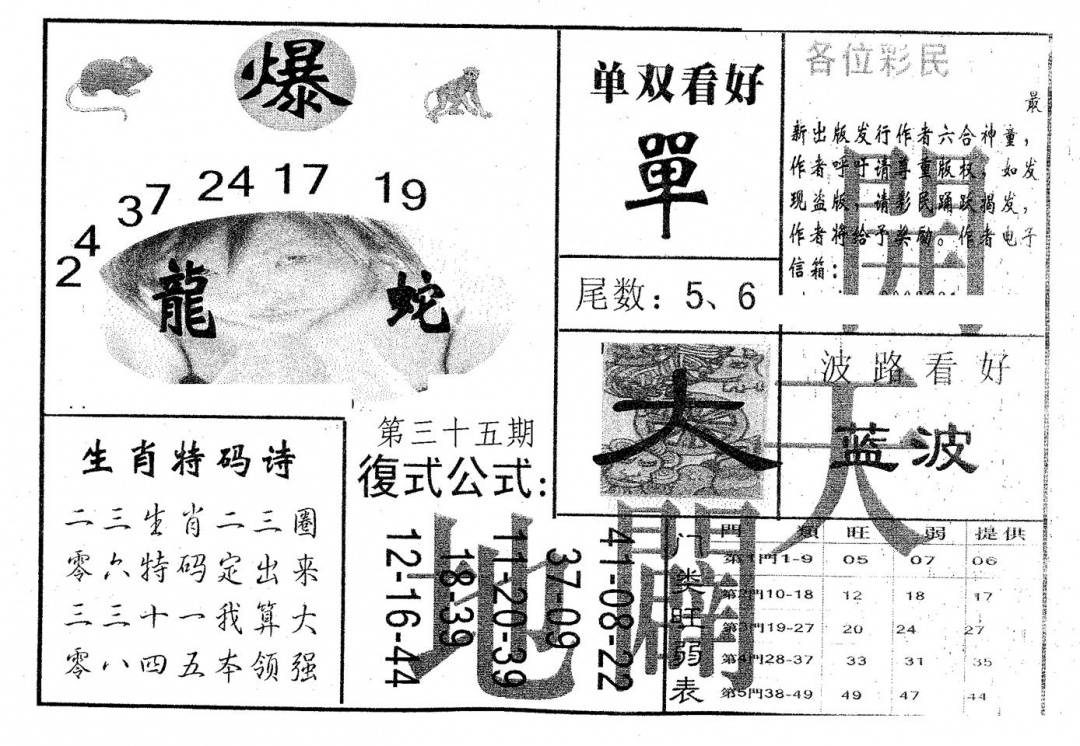 爆
24
37 24 17 19
龍 蛇
单双看好
單
尾数：5、6
各位彩民
最
新出版发行作者六合神童，
作者呼吁请尊重版权，如发
现盗版，请彩民踊跃揭发，
作者将给予奖励。作者电子
信箱：
大
波路看好
蓝波
開
天
闢
地
生肖特码诗
二三生肖二三圈
零六特码定出来
三三十一我算大
零八四五本领强
第三十五期
復式公式：
41-08-22
37-09
11-20-39
18-39
12-16-44
门类旺弱表
門 類 旺 弱 提供
第1門1-9 05 07 06
第2門10-18 12 18 17
第3門19-27 20 24 27
第4門28-37 33 31 35
第5門38-49 49 47 44